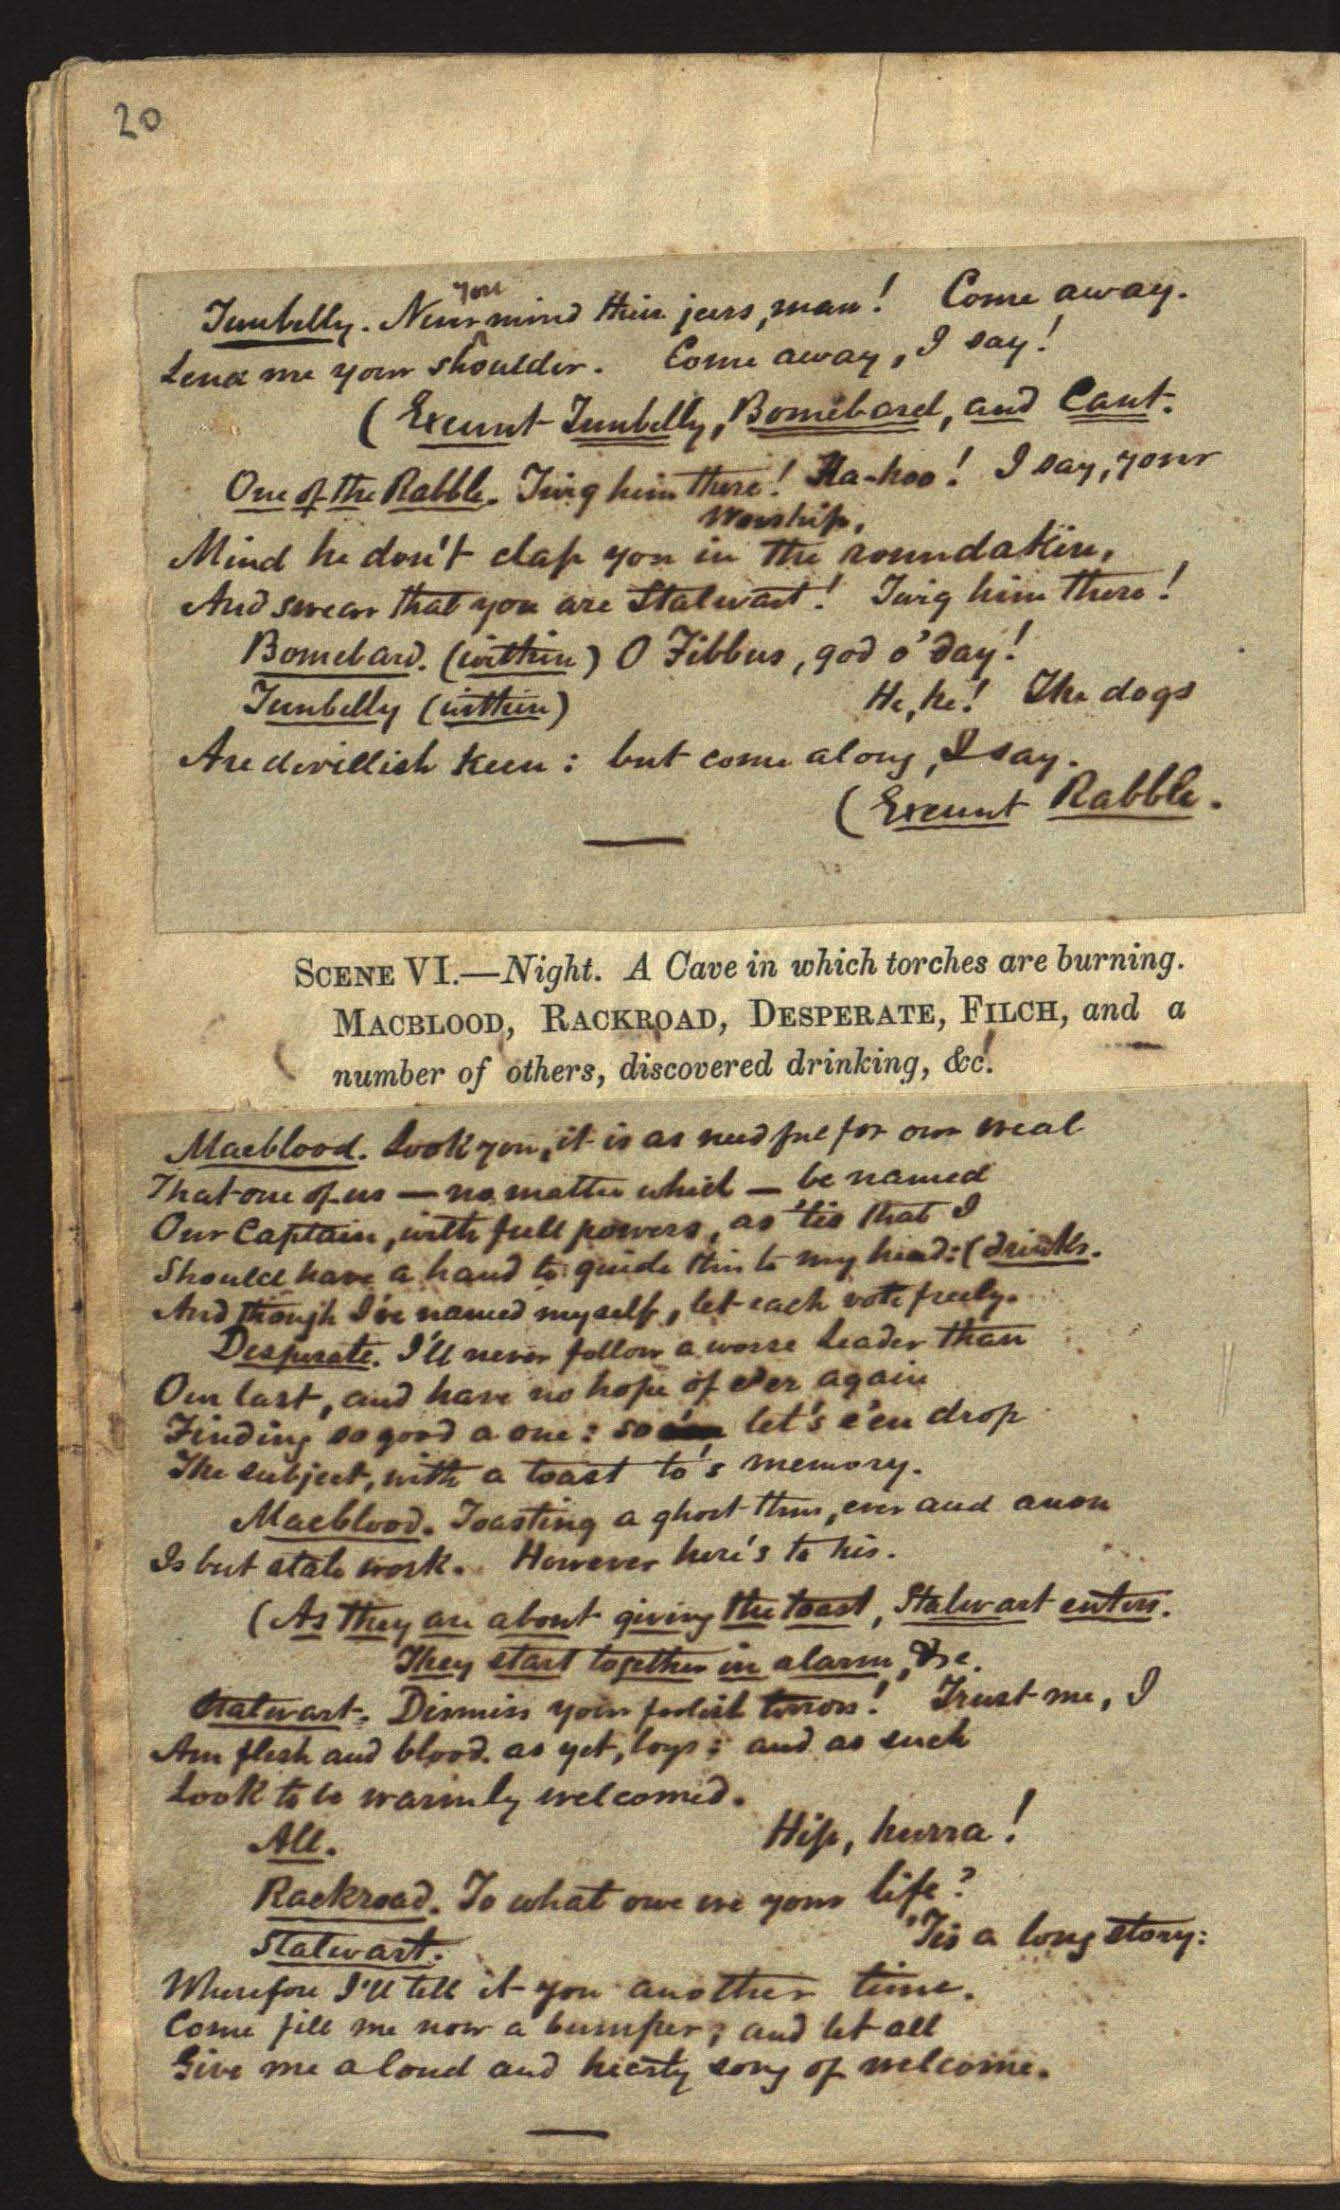 20
Tunbelly. Never you mind their jeers, man! Come away.
Lend me your shoulder. Come away, I say!
(Exeunt Tunbelly, Bomebard, and Cant.
One of the Rabble. Twig him there! Ha-hoo! I say, your
Worship,
Mind he don't clap you in the roundakin,
And swear that you are Stalwart! Twig him there!
Bomebard. (within) O Fibbus, god o' day!
Tunbelly (within) He, he! The dogs
Are devillish keen: but come along, I say.
(Exeunt Rabble.
SCENE VI.—Night. A Cave in which torches are burning.
MACBLOOD, RACKROAD, DESPERATE, FILCH, and a
number of others, discovered drinking, &c.
Macblood. Look you, it is as needful for our weal
That one of us — no matter which — be named
Our Captain, with full powers, as 'tis that I
Should have a hand to guide this to my head: (drinks.
And though I've named myself, let each vote freely.
Desperate. I'll never follow a worse leader than
Our last, and have no hope of e'er again
Finding so good a one: so let's e'en drop
The subject, with a toast to's memory.
Macblood. Toasting a ghost thus, ever and anon
Is but stale work. However here's to his.
(As they are about giving the toast, Stalwart enters.
They start together in alarm, &c.
Stalwart. Dismiss your foolish terrors! Trust me, I
Am flesh and blood as yet, boys; and as such
Look to be warmly welcomed.
All. Hip, hurra!
Rackroad. To what owe we your life?
Stalwart. 'Tis a long story:
Wherefore I'll tell it you another time.
Come fill me now a bumper; and let all
Give me a loud and hearty song of welcome.